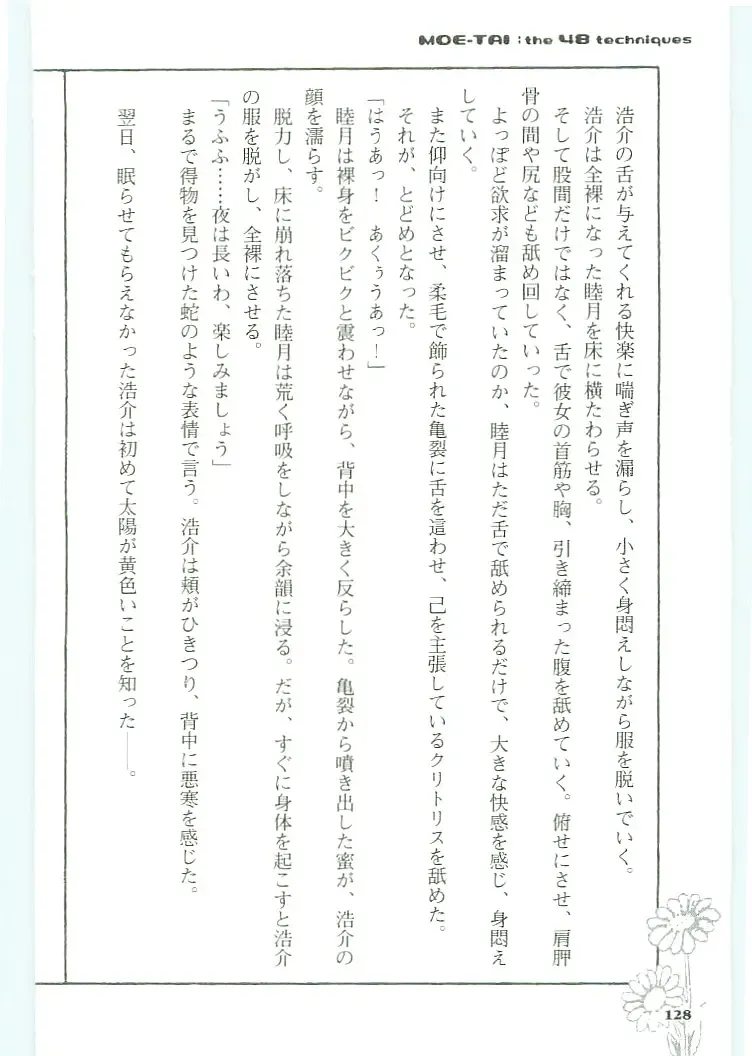 MOE-TAI : the 48 techniques
浩介の舌が与えてくれる快楽に喘ぎ声を漏らし、小さく身悶えしながら服を脱いでいく。
浩介は全裸になった睦月を床に横たわらせる。
そして股間だけではなく、舌で彼女の首筋や胸、引き締まった腹を舐めていく。俯せにさせ、肩胛
骨の間や尻なども舐め回していった。
よっぽど欲求が溜まっていたのか、睦月はただ舌で舐められるだけで、大きな快感を感じ、身悶え
していく。
また仰向けにさせ、柔毛で飾られた亀裂に舌を這わせ、己を主張しているクリトリスを舐めた。
それが、とどめとなった。
「はうあっ！　あくぅうあっ！」
睦月は裸身をビクビクと震わせながら、背中を大きく反らした。亀裂から噴き出した蜜が、浩介の
顔を濡らす。
脱力し、床に崩れ落ちた睦月は荒く呼吸をしながら余韻に浸る。だが、すぐに身体を起こすと浩介
の服を脱がし、全裸にさせる。
「うふふ……夜は長いわ、楽しみましょう」
まるで得物を見つけた蛇のような表情で言う。浩介は頬がひきつり、背中に悪寒を感じた。
翌日、眠らせてもらえなかった浩介は初めて太陽が黄色いことを知った――。
128